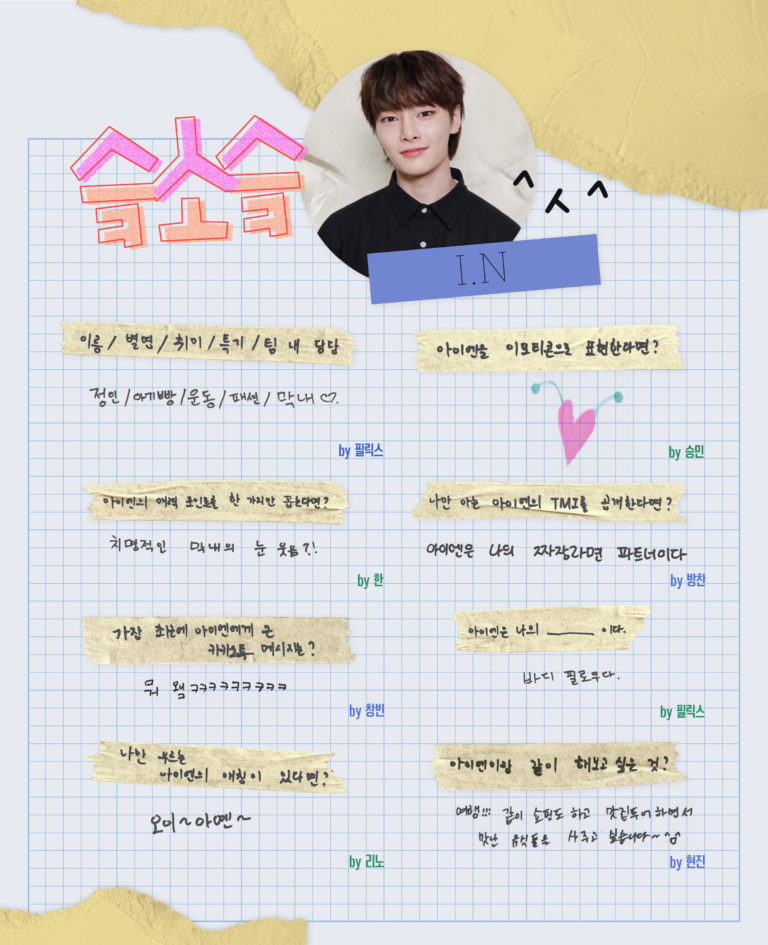 슼소슼
^ㅅ^
I.N
이름 / 별명 / 취미 / 특기 / 팀 내 담당
정인 / 아기빵 / 운동 / 패션 / 막내♡.
by 필릭스
아이엔을 이모티콘으로 표현한다면?
by 승민
아이엔의 매력 포인트를 한 가지만 꼽는다면?
치명적인 막내의 눈 웃음?!
by 한
나만 아는 아이엔의 TMI를 공개한다면?
아이엔은 나의 짜장라면 파트너이다
by 방찬
가장 최근에 아이엔에게 온
카카오톡 메시지는?
뭐 왴ㅋㅋㅋㅋㅋㅋㅋㅋㅋ
by 창빈
아이엔은 나의 ______ 이다.
바디 필로우다.
by 필릭스
나만 부르는
아이엔의 애칭이 있다면?
오이~아옌~
by 리노
아이엔이랑 같이 해보고 싶은 것?
여행!!! 같이 쇼핑도 하고 맛집투어하면서
맛난 음식들을 사주고 싶습니다~^^
by 현진